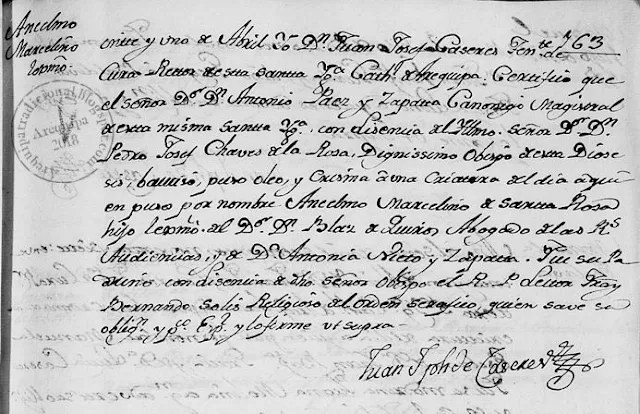 Anselmo
Marceliño
lexmo.
763
einte y uno de Abril Yo Dn. Juan Josef Caseres Tente. de
Cura Rector de esta Santa Yga. Cathl. de Arequipa. Certifico que
el señor Dor. Dn. Antonio Paez y Zapata Canonigo Magistral
de esta misma santa Yga. con lisencia del Yltmo. señor Dor. Dn.
Pedro Josef Chaves de la Rosa, Dignissimo Obispo de esta Diose
sis, bautiso, puso oleo, y Crisma à una criatura del dia à quien
en puso por nombre Anselmo Marceliño de santa Rosa
hijo lexmo. del Dor. Dn. Blaz de Quiros Abogado de las Rs.
Audiencias, y de Da. Antonia Nieto y Zapata. Fue su Pa
drino con lisencia de dho. señor Obispo el R. P. Lector Fray
Bernardo Solis Religioso del orden serafico, quien save su
obligon. y po. Espl. y lo firme vt supra
Juan Jph de Caseres
Arequipatradicional.blogspot.com
Arequipa
2018